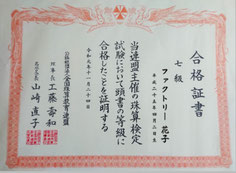 合格証書
七級
ファクトリー 花子
平成二十五年四月三日生
当連盟主催の珠算検定
試験において頭書の等級に
合格したことを証明する
令和元年十一月二十四日
公益社団法人全国珠算教育連盟
理事長 工藤壽和
山崎直子